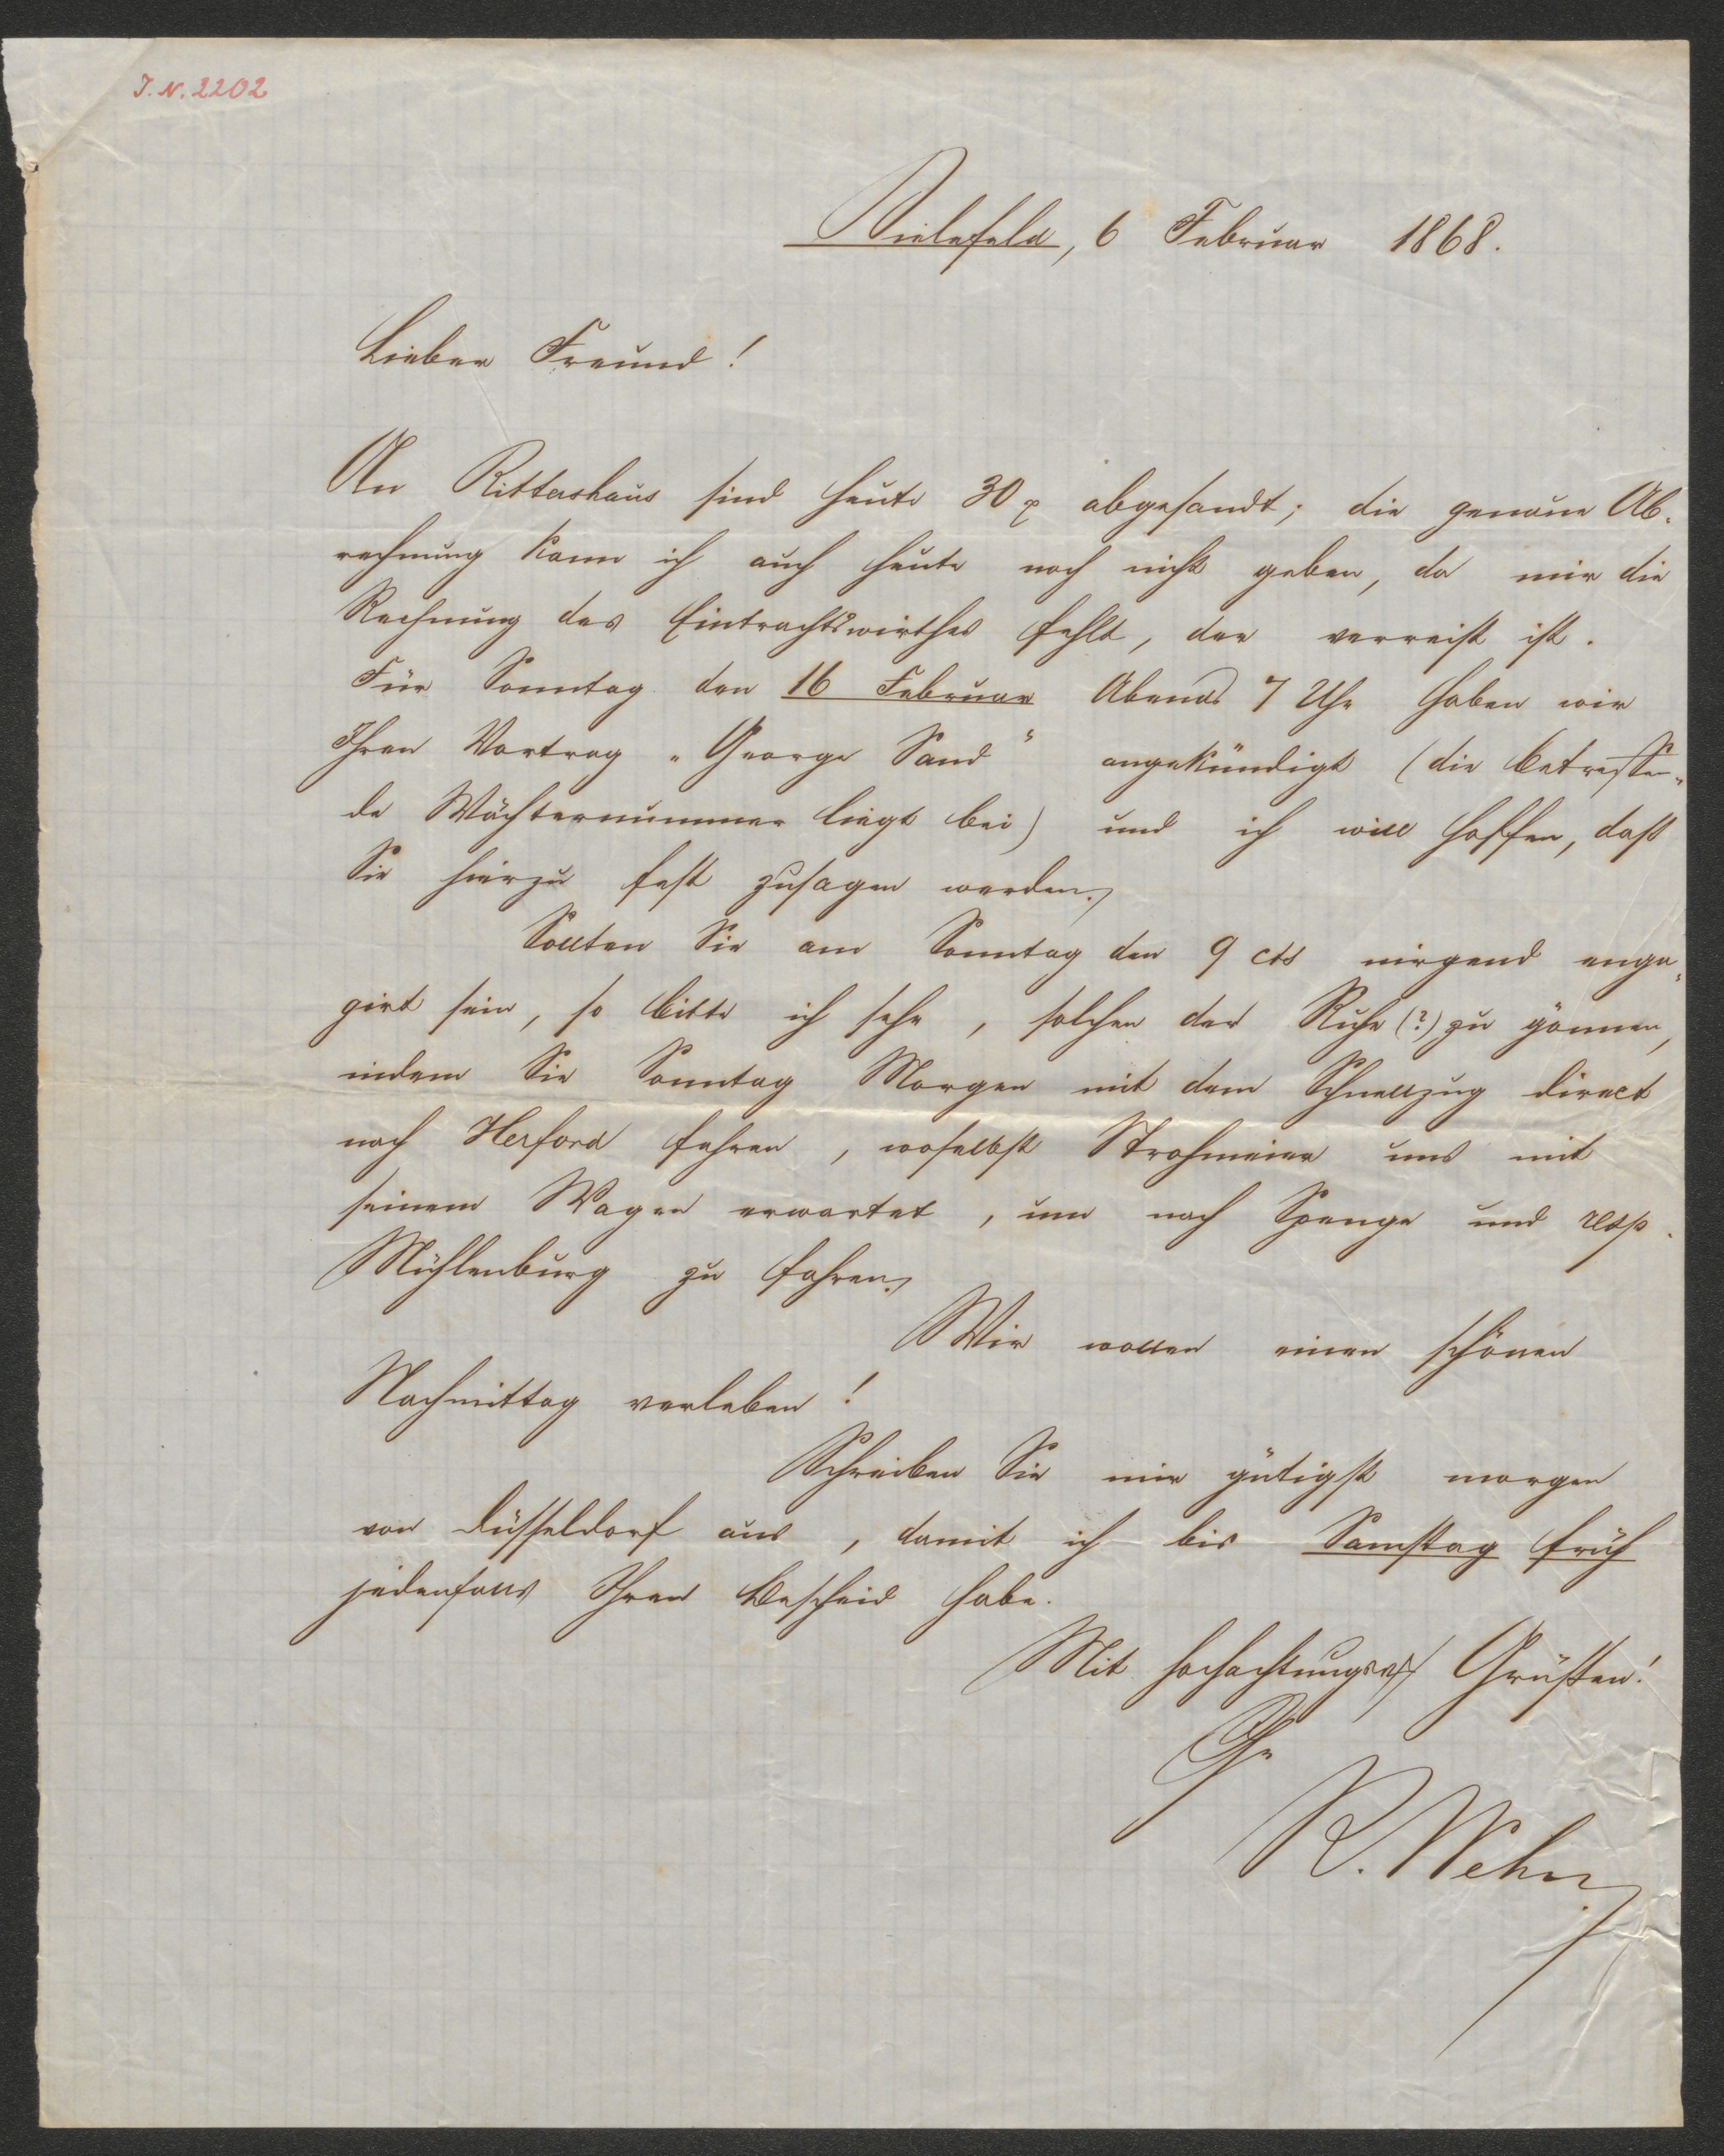 J. N. 2202
Bielefeld, 6 Februar 1868.
Lieber Freund!
An Rittershaus sind heute 30 abgesandt; die genaue Ab-
rechnung kann ich auch heute noch nicht geben, da mir die
Rechnung des Eintrachtswirthes fehlt, der verreist ist.
Für Sonntag den 16 Februar Abends 7 Uhr haben wir
Ihren Vortrag „George Sand“ angekündigt (die betreffen-
de Wächternummer liegt bei) und ich will hoffen, daß
Sie hierzu fest zusagen werden.
Sollten Sie am Sonntag den 9 cts nirgend enga-
girt sein, so bitte ich sehr, solchen der Ruhe (?) zu gönnen,
indem Sie Sonntag Morgen mit dem Schnellzug direct
nach Herford fahren, woselbst Strohmeier uns mit
seinem Wagen erwartet, um nach Spenge und resp.
Mühlenburg zu fahren.
Wir wollen einen schönen
Nachmittag verleben!
Schreiben Sie mir gütigst morgen
von Düsseldorf aus, damit ich bis Samstag früh
jedenfalls Ihren Bescheid habe.
Mit hochachtungsv. Grüßen!
Ihr
R. Wehn